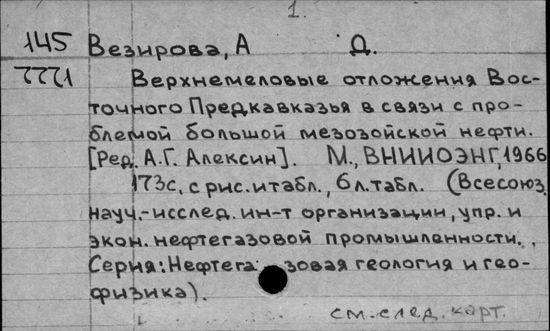 1.
145 Везирова, А Д.
7771 Верхнемеловые отложения Вос-
точного Предкавказья в связи с про-
блемой большой мезозойской нефти.
[Ред. А.Г. Алексин]. М., ВНИИОЭНГ, 1966
173с. с рис. и табл., 6 л. табл. (Всесоюз.
науч.-исслед. ин-т организации, упр. и
экон. нефтегазовой промышленности.,
Серия: Нефтега зовая геология и гео-
физика).
см. след. карт.